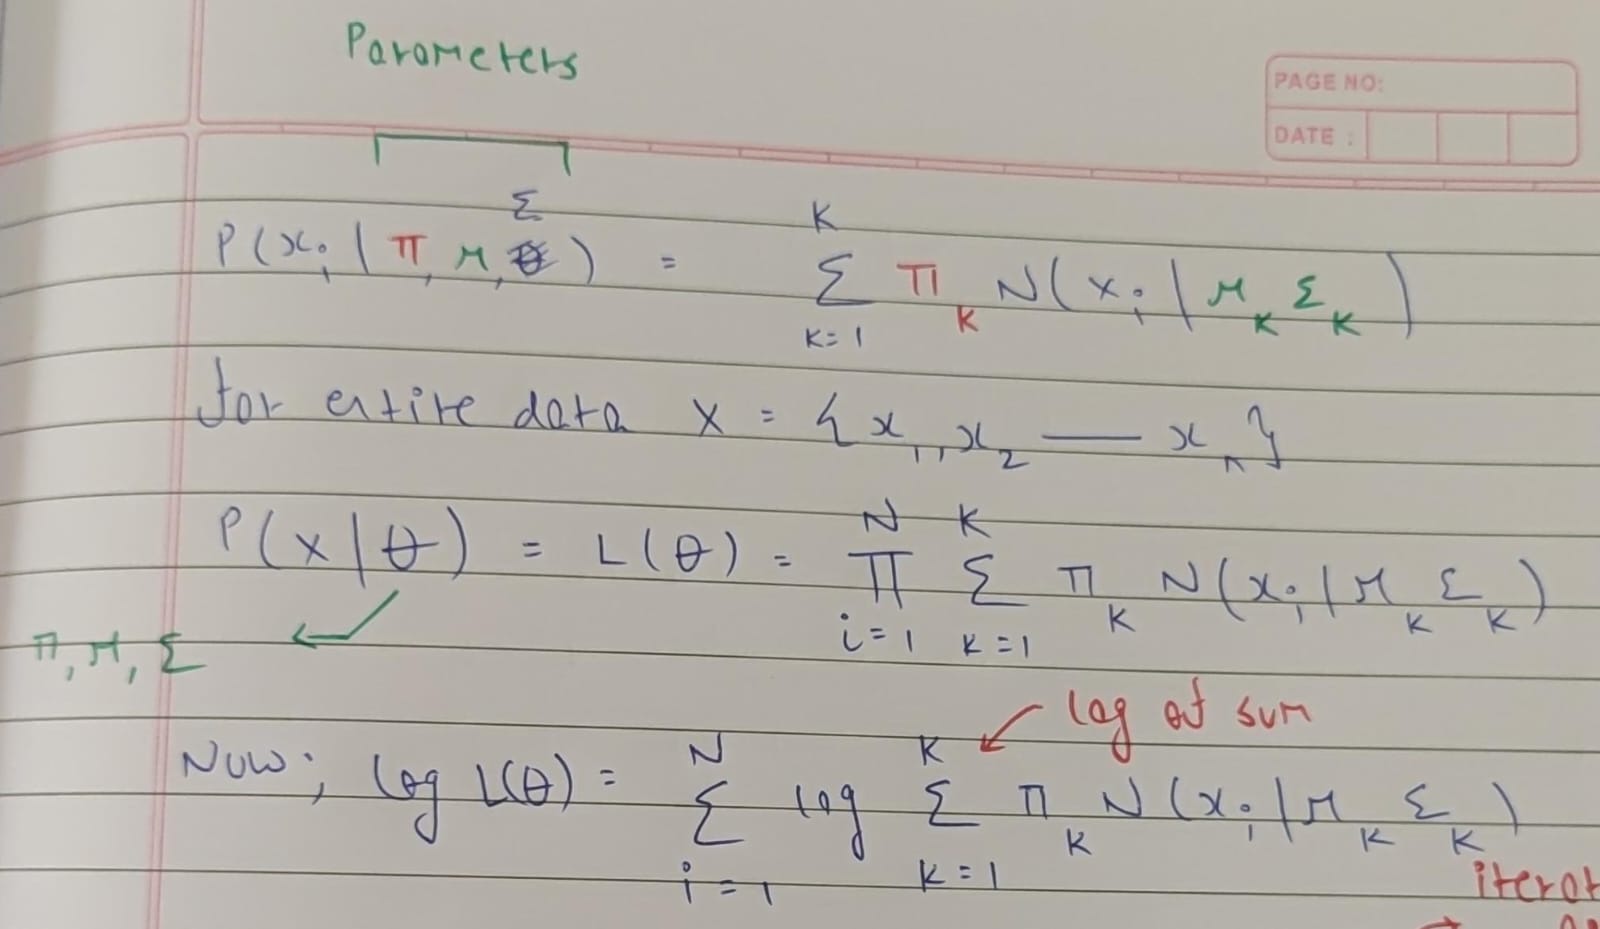 Parameters
PAGE NO:
DATE :
P(xᵢ | π, μ, Σ) = Σ_{K=1}^{K} π_K N(xᵢ | μ_K Σ_K)
for entire data X = {x₁, x₂ — xₙ}
P(X|θ) = L(θ) = Π_{i=1}^{N} Σ_{K=1}^{K} π_K N(xᵢ | μ_K Σ_K)
π, μ, Σ
log of sum
Now; log L(θ) = Σ_{i=1}^{N} log Σ_{K=1}^{K} π_K N(xᵢ | μ_K Σ_K)